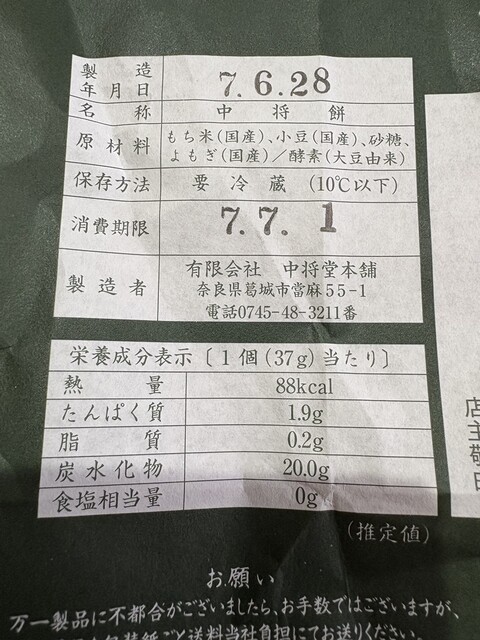 製造
年月日 7.6.28
名称 中将餅
原材料 もち米(国産)、小豆(国産)、砂糖、
よもぎ(国産)／酵素(大豆由来)
保存方法 要冷蔵 (10℃以下)
消費期限 7.7.1
製造者 有限会社 中将堂本舗
奈良県葛城市當麻55-1
電話0745-48-3211番
栄養成分表示〔1個(37g)当たり〕
熱量 88kcal
たんぱく質 1.9g
脂質 0.2g
炭水化物 20.0g
食塩相当量 0g
(推定値)
店主敬白
お願い
万一製品に不都合がございましたら、お手数ではございますが、
包装紙ごと送料当社負担にてお送りください。